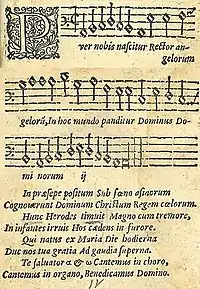 PVer nobis naſcitur Rector an-
gelorum
gelorū, In hoc mundo panditur Dominus Do-
mi norum ij
In præſepe poſitum Sub fœno aſinorum
Cognoverunt Dominum Chriſtum Regem cœlorum.
Hunc Herodes timuit Magno cum tremore,
In infantes irruit Hos cædens in furore.
Qui natus ex Maria Die hodierna
Duc nos tua gratia Ad gaudia ſuperna.
Te ſaluator α & ω Cantemus in choro,
Cantemus in organo, Benedicamus Domino.